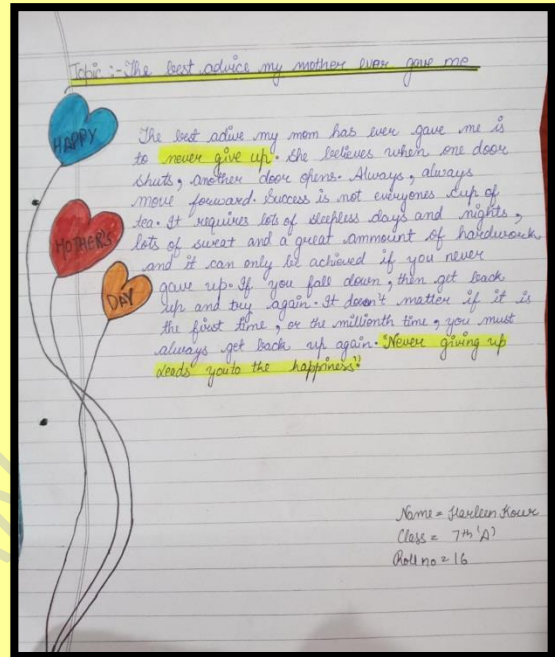 Topic :- The best advice my mother ever gave me
HAPPY
MOTHER'S
DAY
The best adive my mom has ever gave me is
to never give up. She believes when one door
shuts, another door opens. Always, always
move forward. Success is not everyones cup of
tea. It requires lots of sleepless days and nights,
lots of sweat and a great ammount of hardwork
and it can only be achieved if you never
gave up. If you fall down, then get back
up and try again. It doesn't matter if it is
the first time, or the millionth time, you must
always get back up again. "Never giving up
leads you to the happiness"
Name = Harleen Kour
Class = 7th 'A'
Roll no = 16